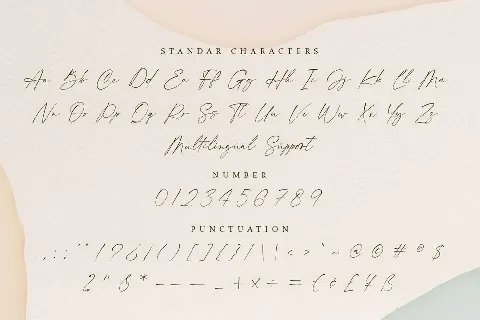 STANDAR CHARACTERS
Aa Bb Cc Dd Ee Ff Gg Hh Ii Jj Kk Ll Mm
Nn Oo Pp Qq Rr Ss Tt Uu Vv Ww Xx Yy Zz
Multilingual Support
NUMBER
0123456789
PUNCTUATION
. , : ; " " ! ? & / ( ) [ ] { } | \ ¦ < > ` ~ @ © # ® $
2 ^ ß * - – — _ + × ÷ = € ¢ £ ¥